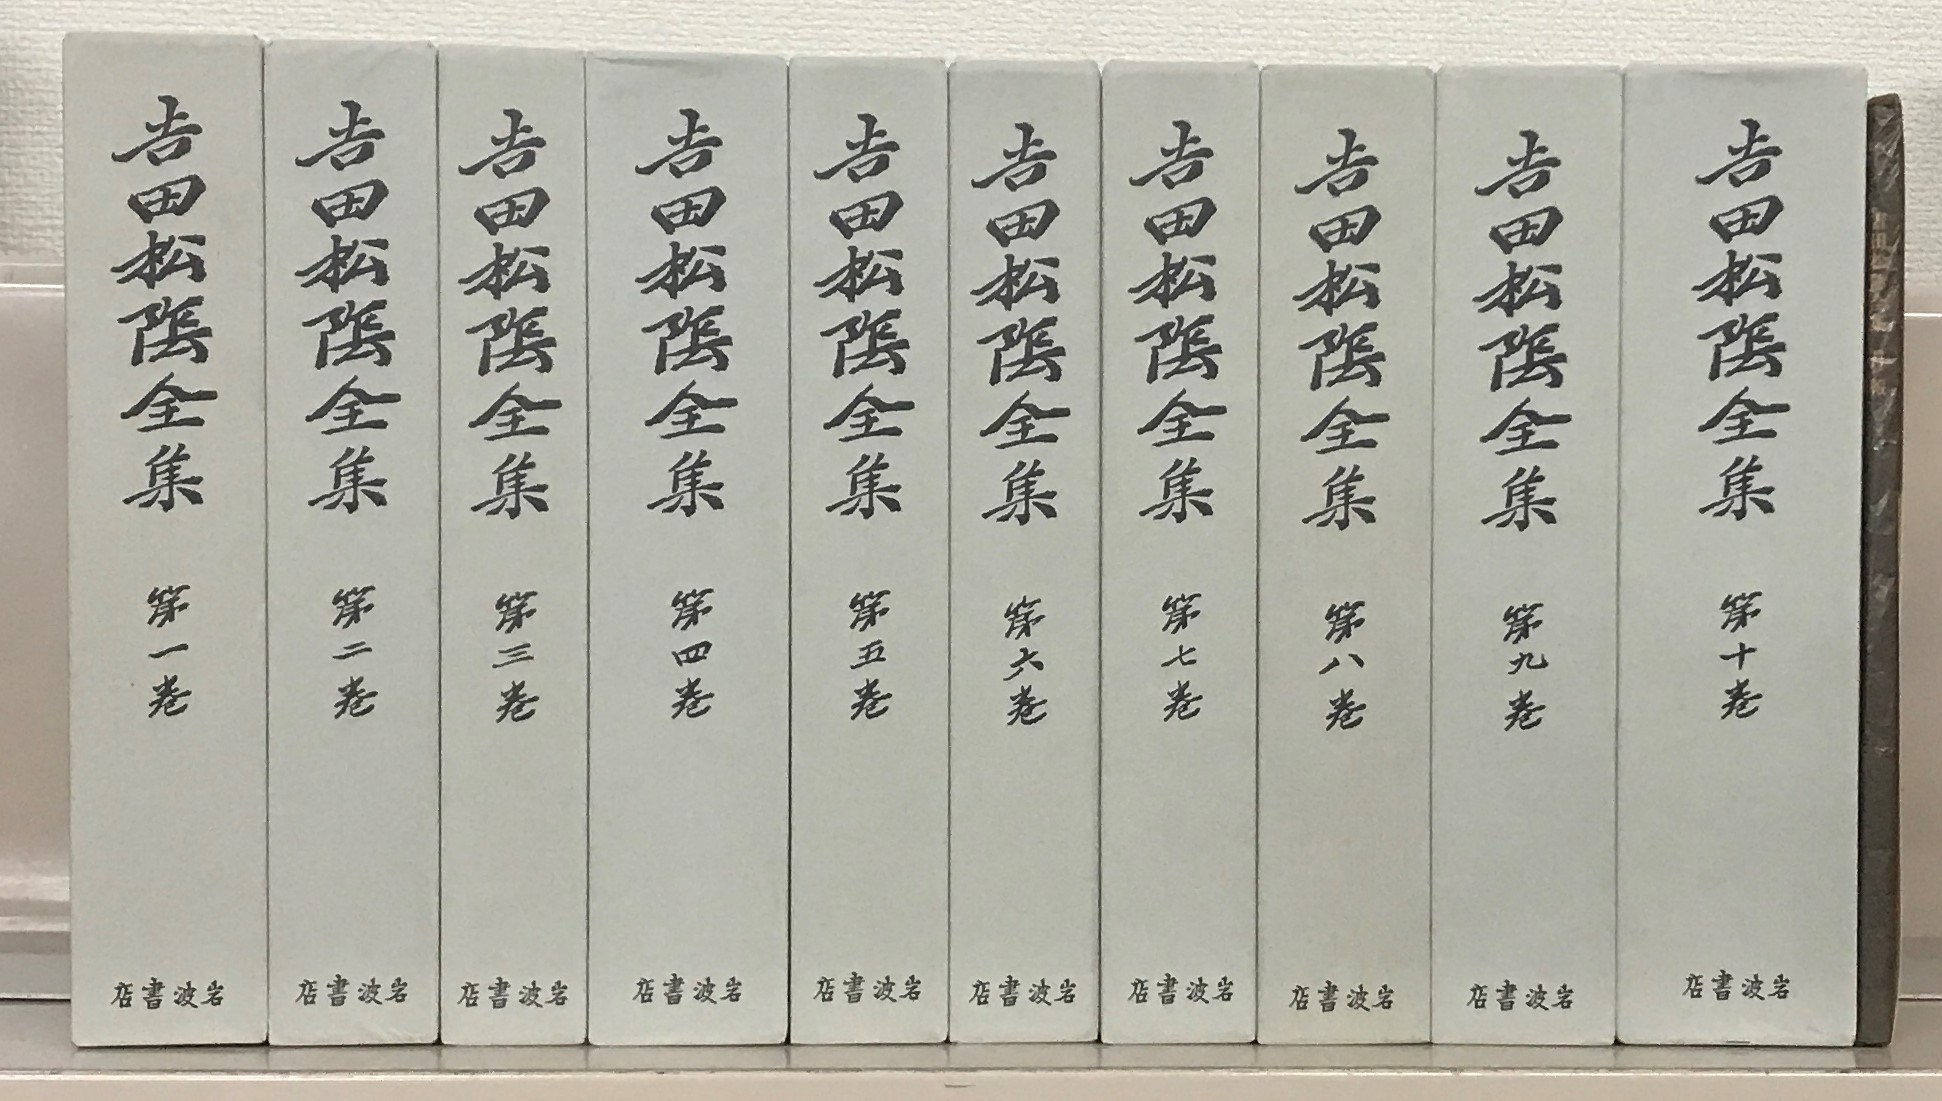 吉田松陰全集 第一巻
店書波岩
吉田松陰全集 第二巻
店書波岩
吉田松陰全集 第三巻
店書波岩
吉田松陰全集 第四巻
店書波岩
吉田松陰全集 第五巻
店書波岩
吉田松陰全集 第六巻
店書波岩
吉田松陰全集 第七巻
店書波岩
吉田松陰全集 第八巻
店書波岩
吉田松陰全集 第九巻
店書波岩
吉田松陰全集 第十巻
店書波岩